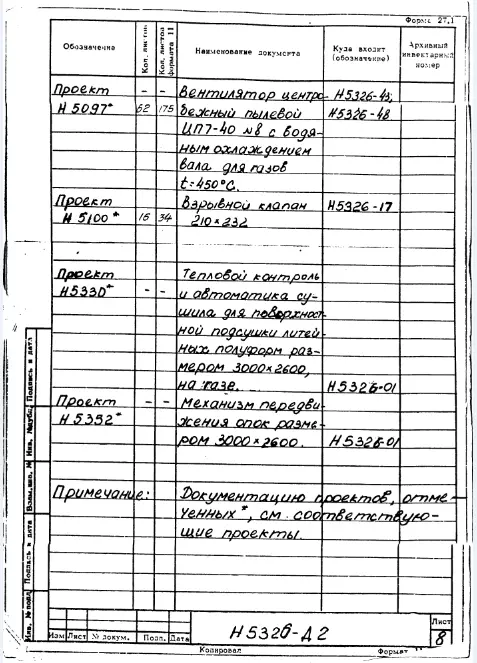 Форма 27.1
Обозначение
Кол. листов
Кол. листов формата 11
Наименование документа
Куда входит
(обозначение)
Архивный
инвентарный
номер
Проект - - Вентилятор центро- Н5326-43;
Н5097* 62 175 бежный пылевой Н5326-48
ЦП7-40 №8 с водя-
ным охлаждением
вала для газов
t=450°С.
Проект - - Взрывной клапан Н5326-17
Н5100* 16 34 210×232
Проект Тепловой контроль
Н5330* - - и автоматика су-
шила для поверхност-
ной подсушки литей-
ных полуформ раз-
мером 3000×2600,
на газе. Н5326-01
Проект - - Механизм передви-
Н5352* жения опок разме-
ром 3000×2600. Н5326-01
Примечание: Документацию проектов, отме-
ченных*, см. соответствую-
щие проекты.
Инв. № подл.
Подпись и дата
Взам. инв. №
Инв. № дубл.
Подпись и дата
Изм Лист № докум. Подп. Дата
Н5326-Д2
Лист
8
Копировал Формат 11